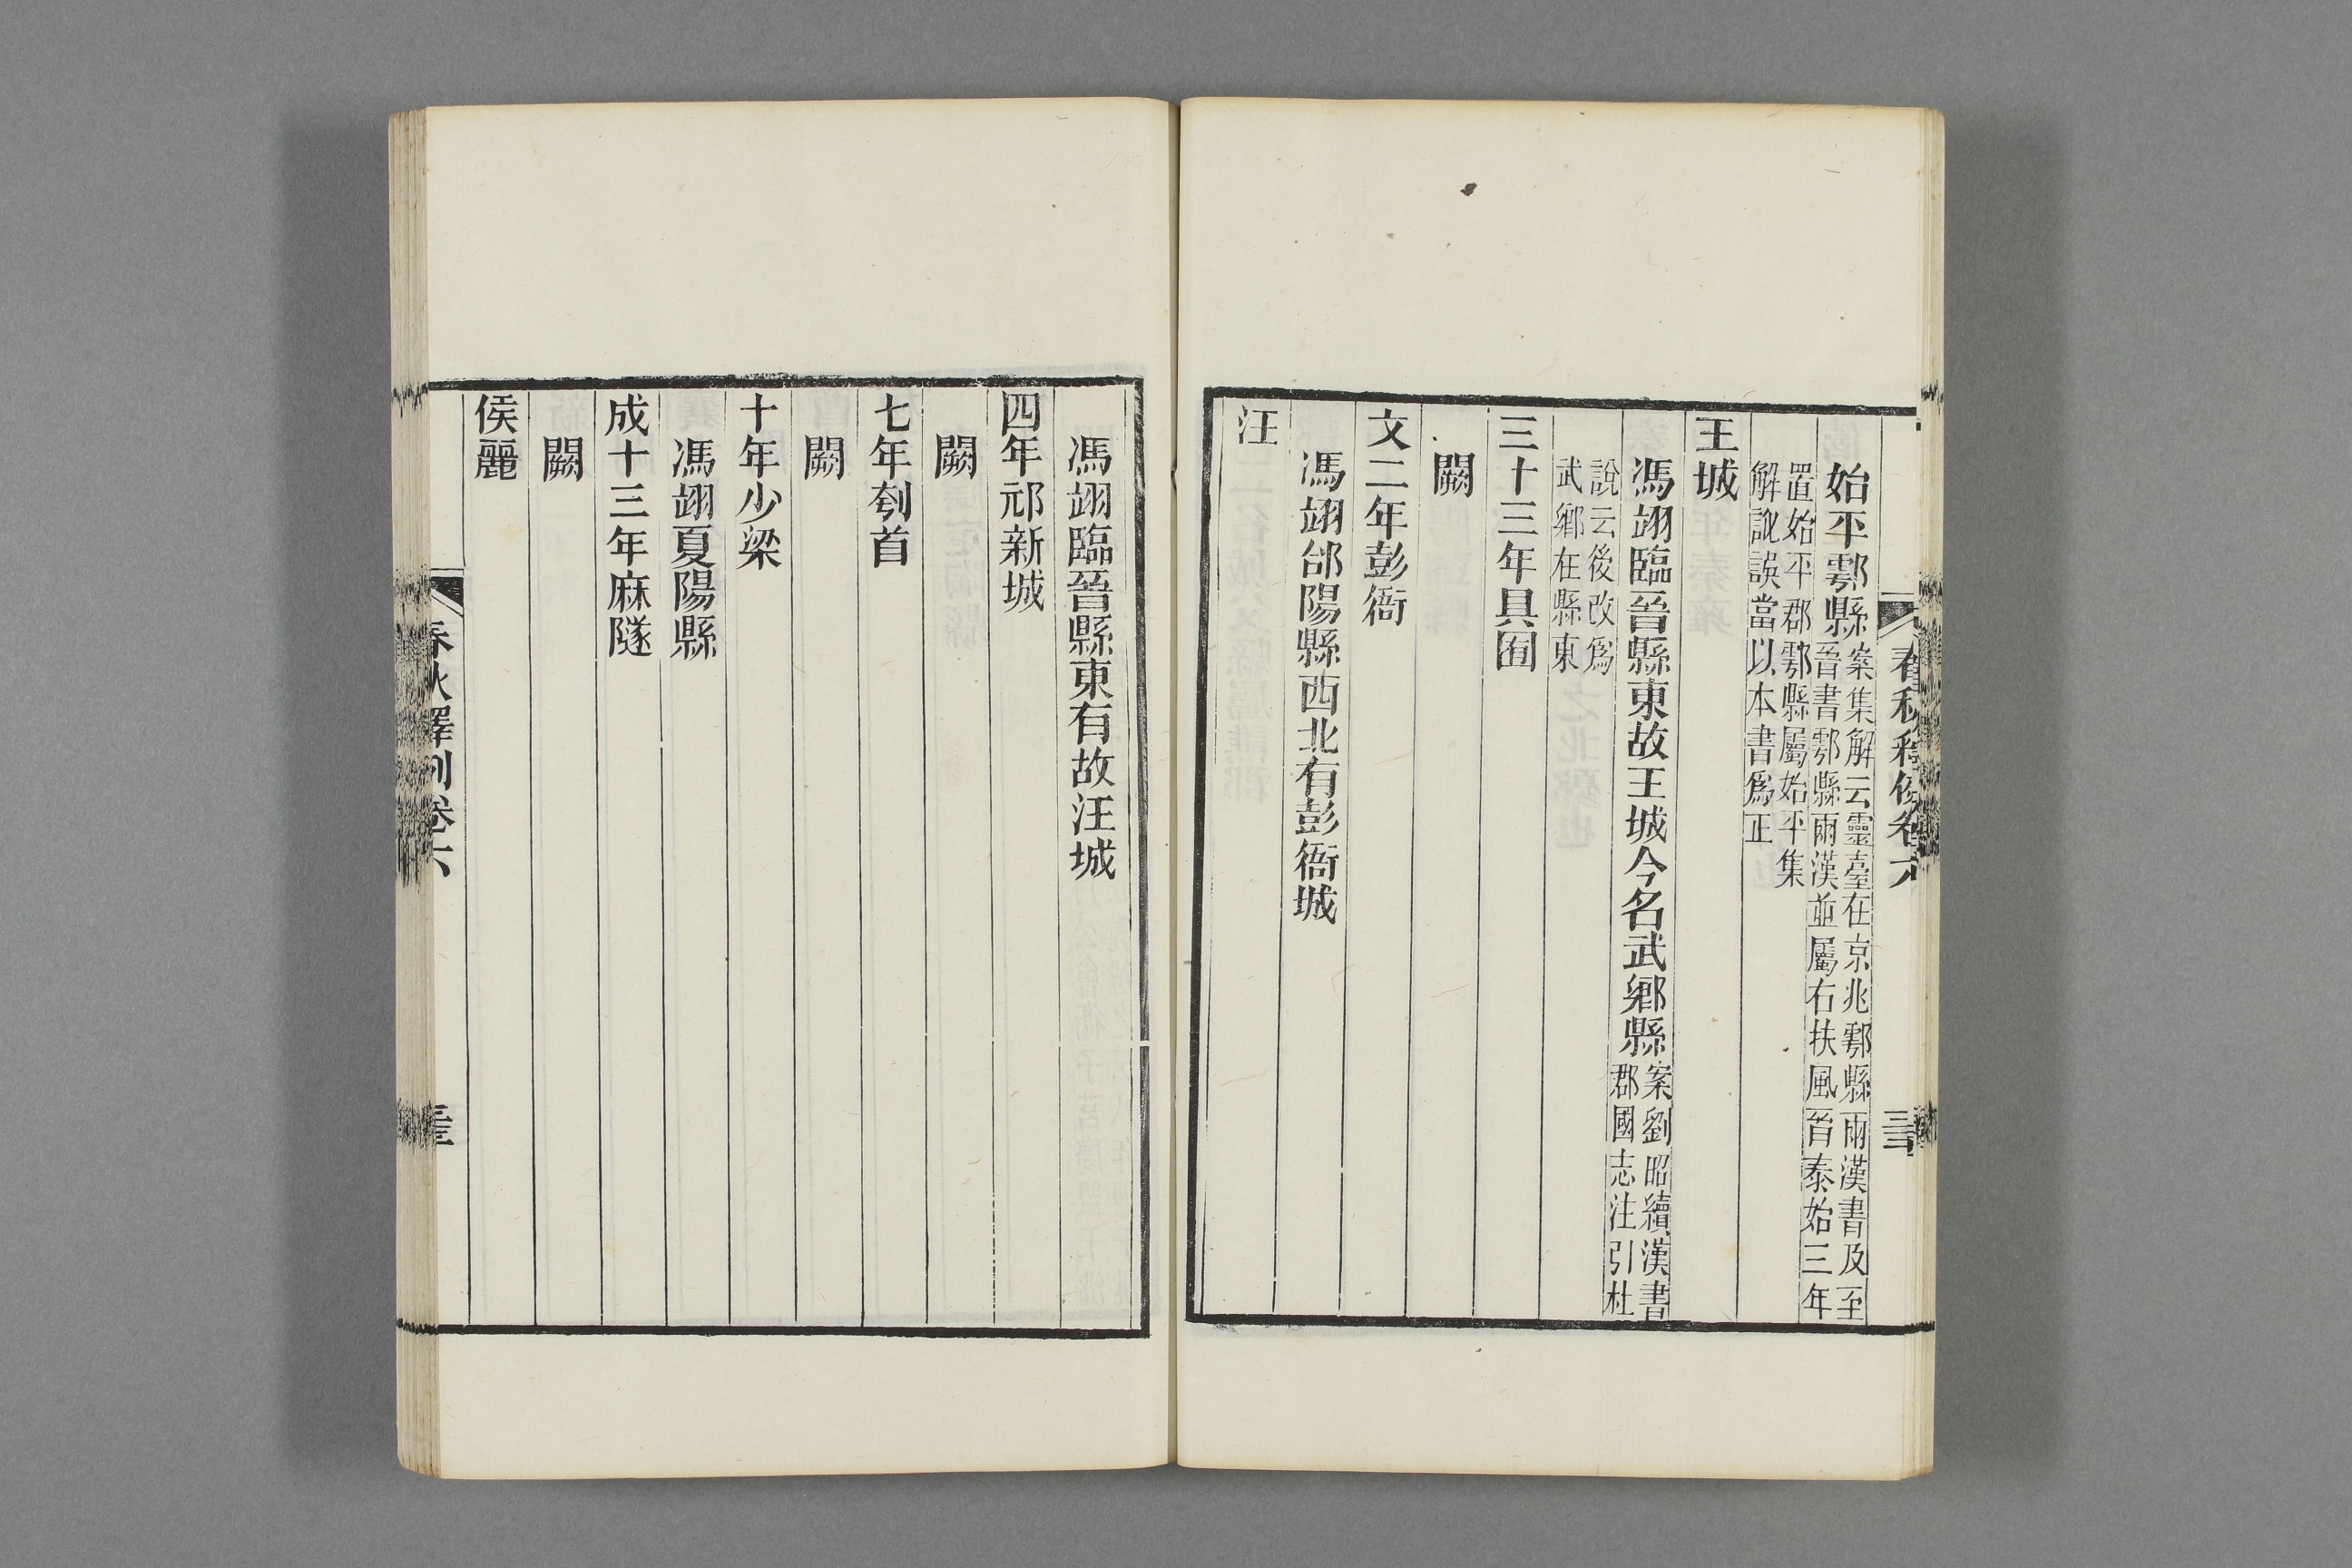 始平鄠縣案集解云靈臺在京兆鄠縣兩漢書及至
晉書鄠縣兩漢並屬右扶風晉泰始三年
置始平郡鄠縣屬始平集
解訛誤當以本書爲正
王城
馮翊臨晉縣東故王城今名武鄉縣案劉昭續漢書
郡國志注引杜
說云後改爲
武鄉在縣東
三十三年具囿
闕
文二年彭衙
馮翊郃陽縣西北有彭衙城
汪
馮翊臨晉縣東有故汪城
四年邧新城
闕
七年刳首
闕
十年少梁
馮翊夏陽縣
成十三年麻隧
闕
侯麗
春秋釋例卷六